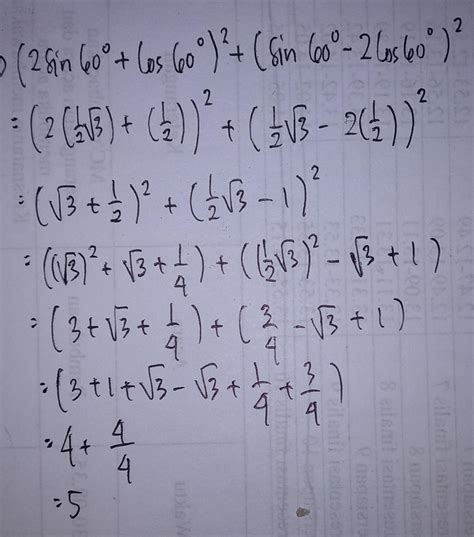 (2 Sin 60° + Cos 60°)² + (Sin 60° - 2 Cos 60°)²
= (2(1/2√3) + (1/2))² + (1/2√3 - 2(1/2))²
= (√3 + 1/2)² + (1/2√3 - 1)²
= ((√3)² + √3 + 1/4) + ((1/2√3)² - √3 + 1)
= (3 + √3 + 1/4) + (3/4 - √3 + 1)
= (3 + 1 + √3 - √3 + 1/4 + 3/4)
= 4 + 4/4
= 5